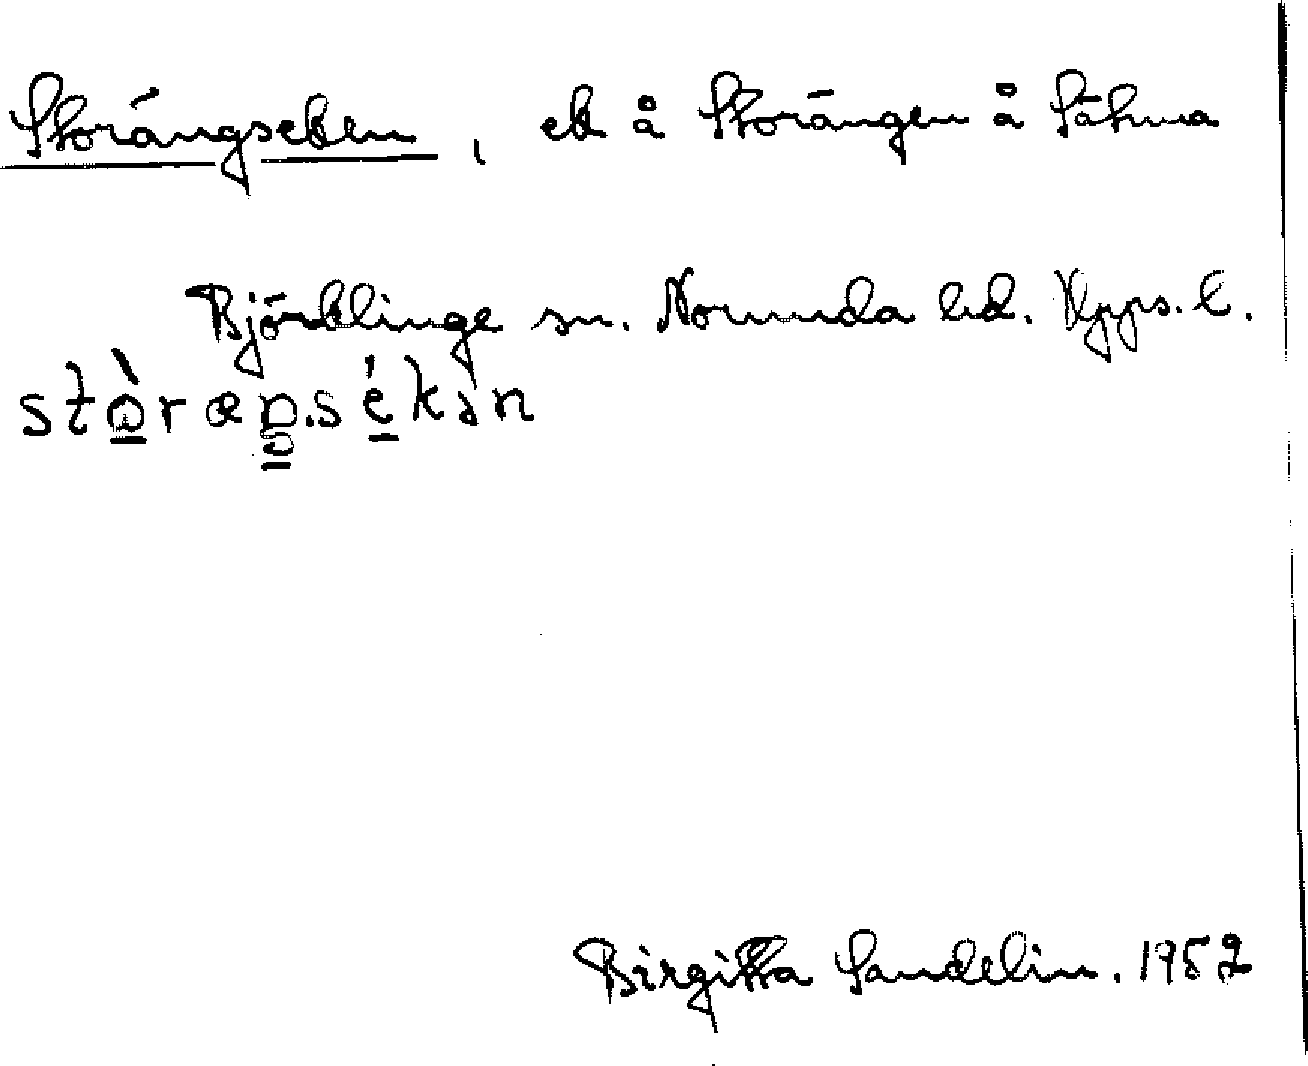 Storängseken, ek å Storängen å Sätuna
Björklinge sn. Norunda hd. Upps. l.
Birgitta Sandelin. 1952